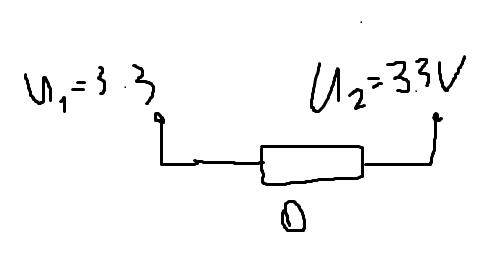 U₁=3.3
U₂=3.3V
0